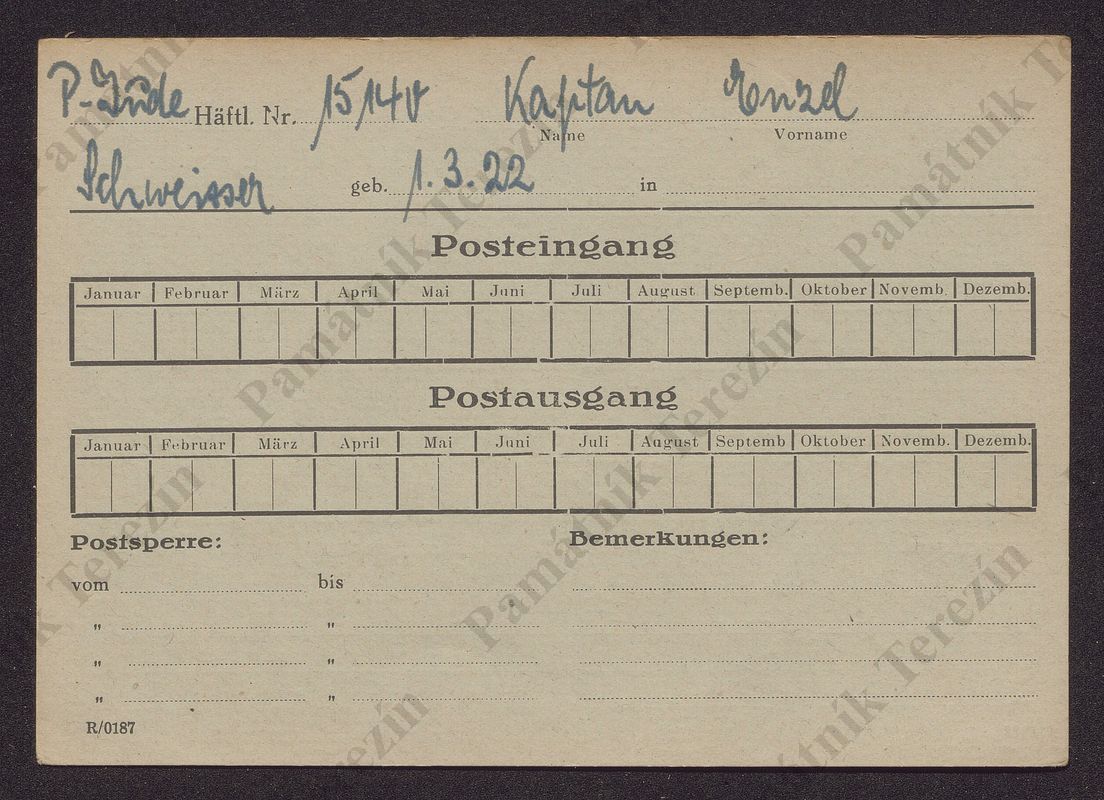 P-Jude Häftl. Nr. 15140 Kaptan Enzel
Name Vorname
Schweisser geb. 1.3.22 in
Posteingang
Januar Februar März April Mai Juni Juli August Septemb. Oktober Novemb. Dezemb.
Postausgang
Januar Februar März April Mai Juni Juli August Septemb Oktober Novemb. Dezemb.
Postsperre: Bemerkungen:
vom bis
" "
" "
" "
R/0187
Památník Terezín